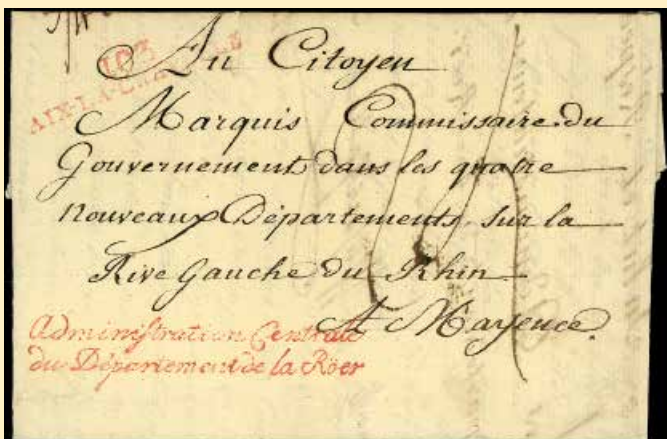 103
AIX-LA-CHAPELLE
Au Citoyen
Marquis Commissaire du
Gouvernement dans les quatre
nouveaux Départements sur la
Rive Gauche du Rhin
A Mayence.
Administration Centrale
du Département de la Röer